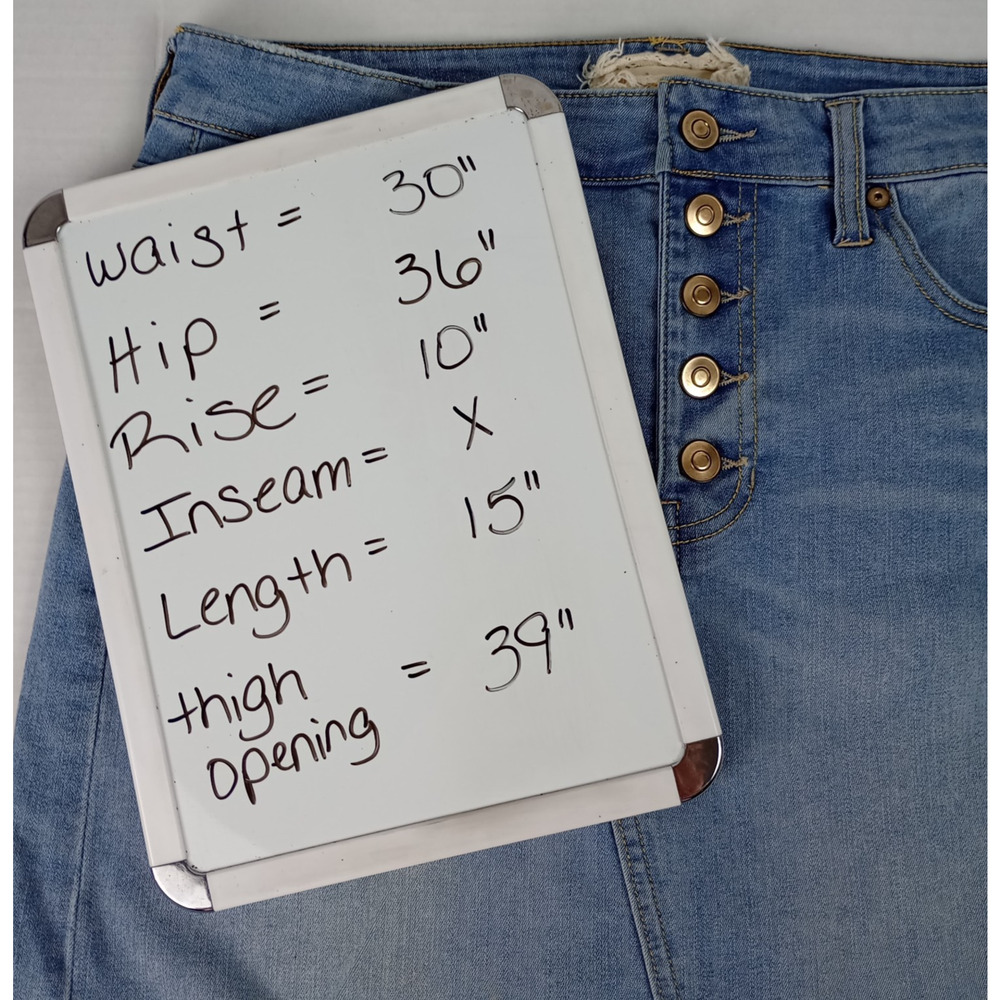 Waist = 30"
Hip = 36"
Rise = 10"
Inseam = X
Length = 15"
thigh = 39"
opening